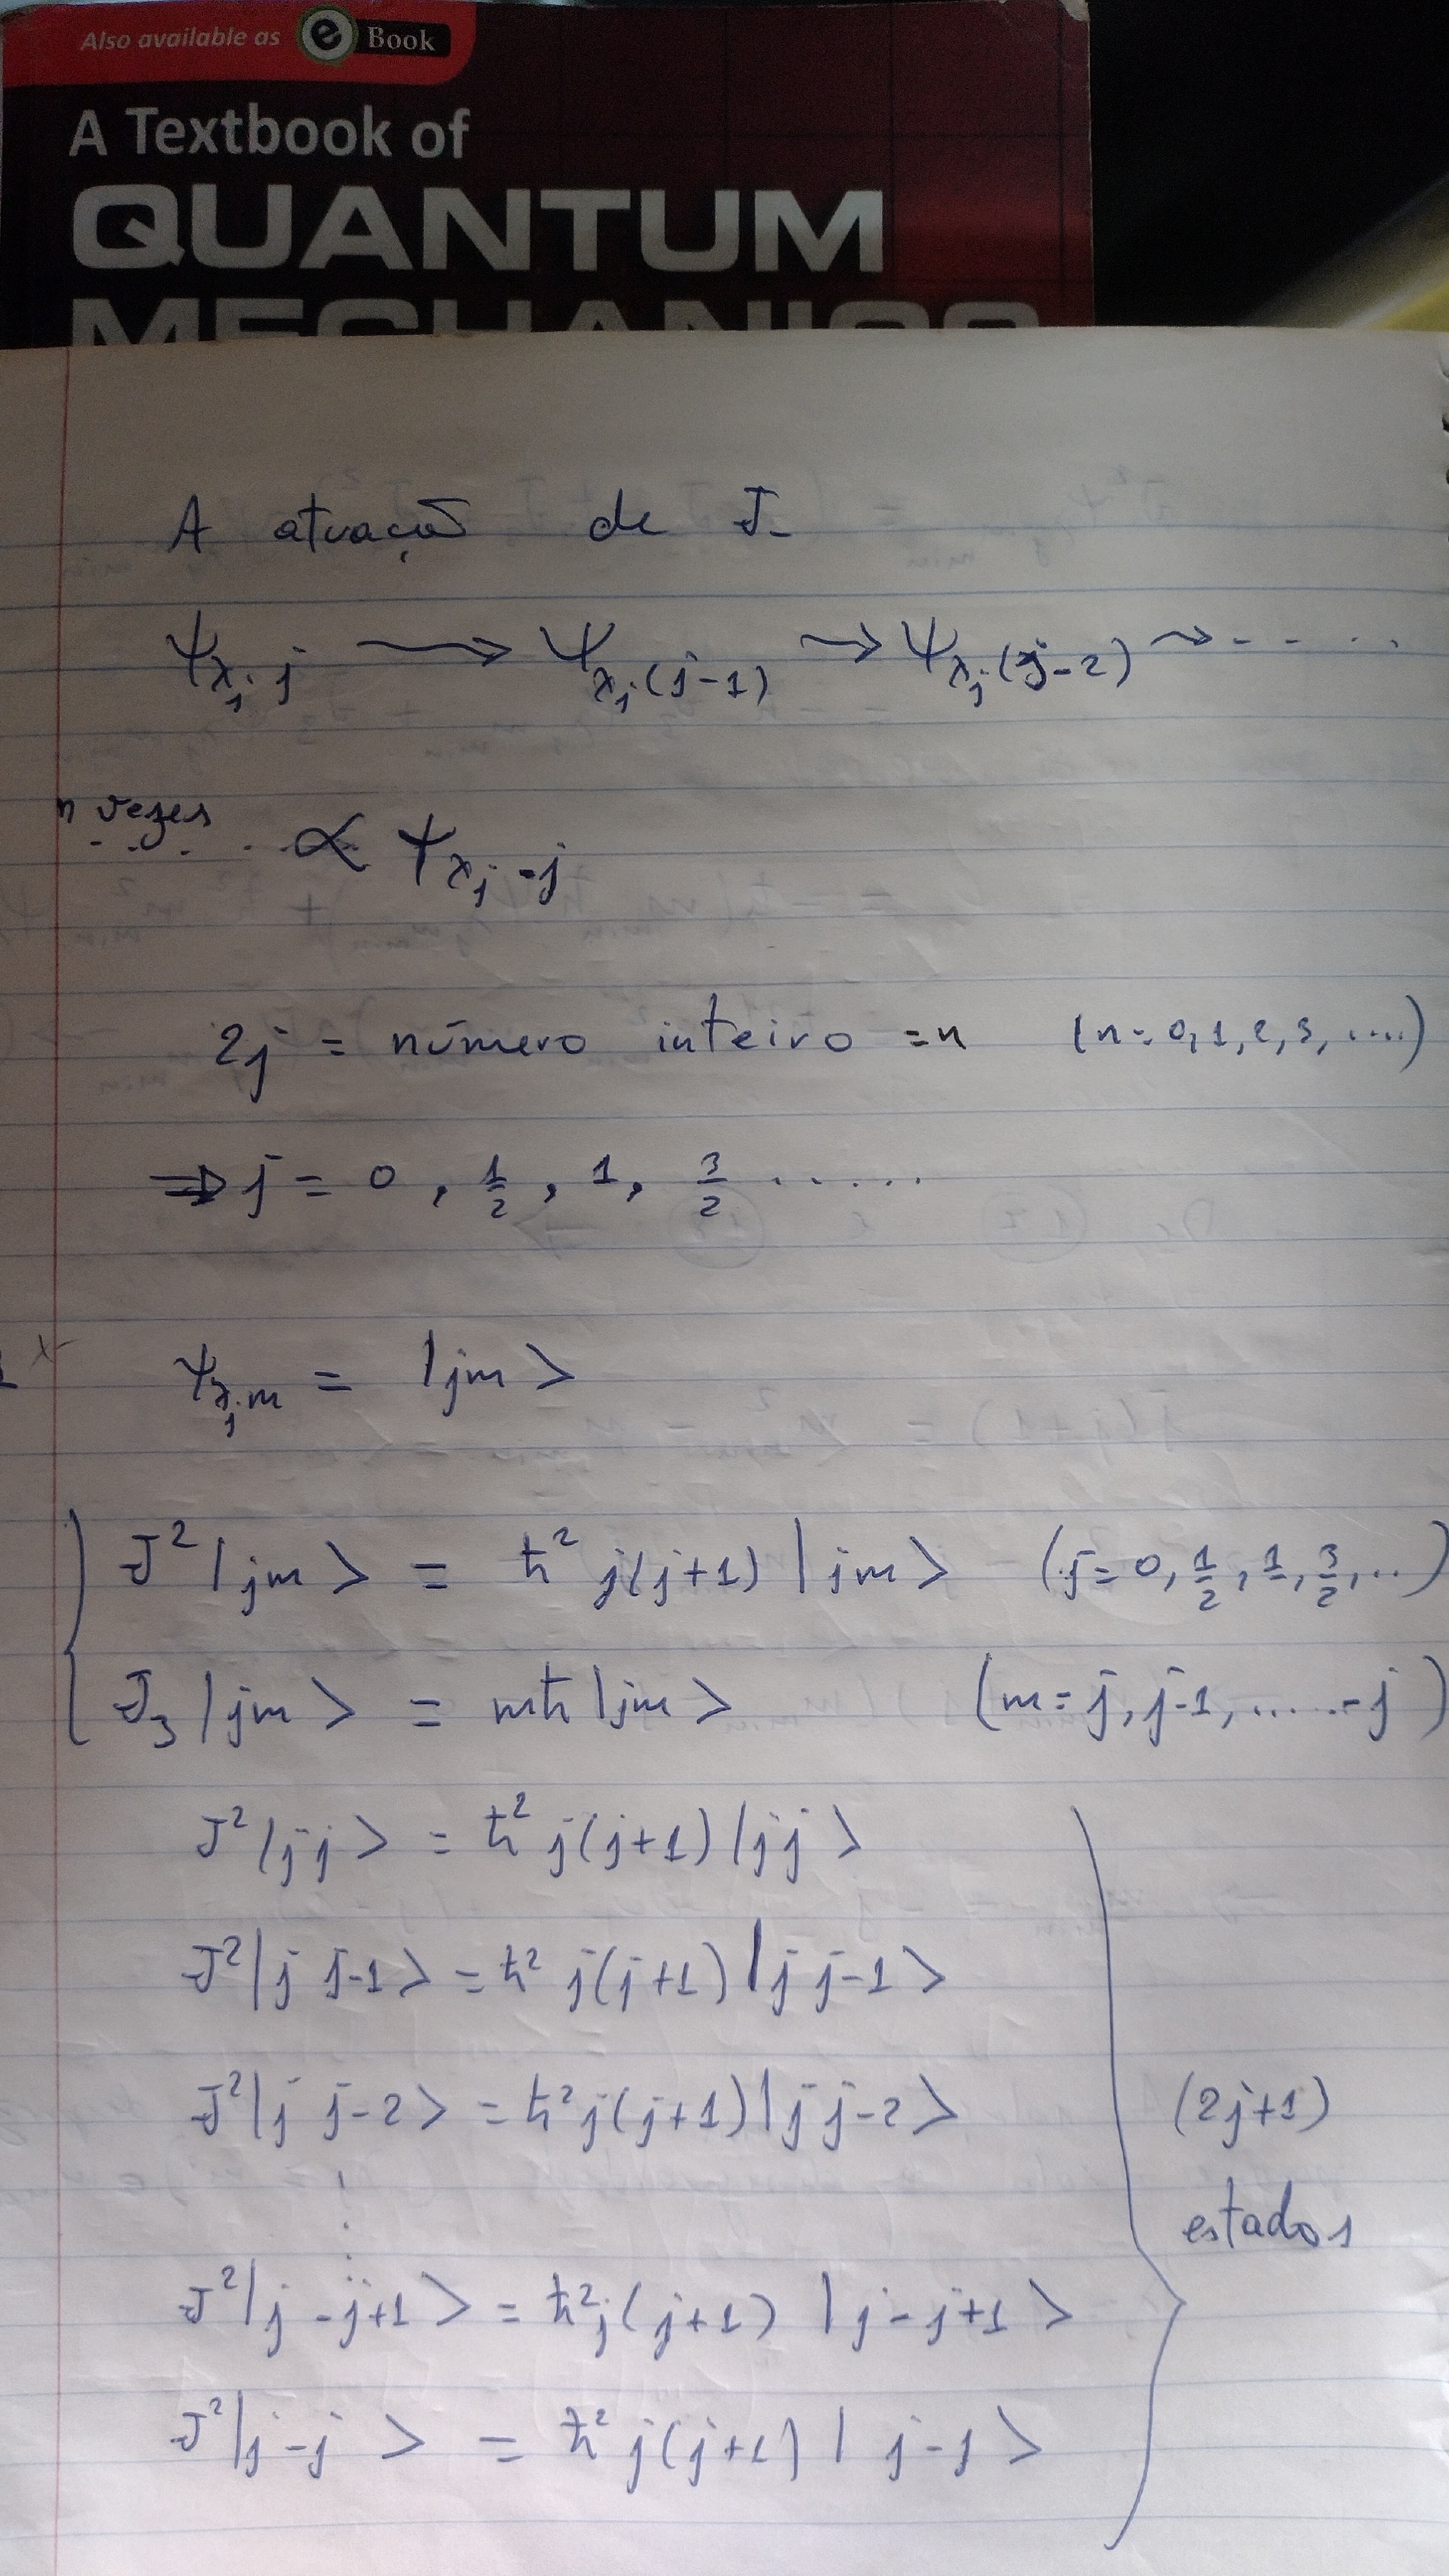 Also available as e Book
A Textbook of
QUANTUM
MECHANICS
A atuação de J₋
ψ_{λ_j j} → ψ_{λ_j (j-1)} → ψ_{λ_j (j-2)} → - - . . .
n vezes
- . . . . ∝ ψ_{λ_j -j}
2j = número inteiro = n (n = 0, 1, 2, 3, ....)
⇒ j = 0, 1/2, 1, 3/2 ......
ψ_{λ_j m} = |jm>
J² |jm> = ħ² j(j+1) |jm> (j = 0, 1/2, 1, 3/2, ..)
J₃ |jm> = mħ |jm> (m = j, j-1, ..... -j)
J² |jj> = ħ² j(j+1) |jj>
J² |j j-1> = ħ² j(j+1) |j j-1>
J² |j j-2> = ħ² j(j+1) |j j-2>
(2j+1)
estados
J² |j -j+1> = ħ² j(j+1) |j -j+1>
J² |j -j> = ħ² j(j+1) |j -j>